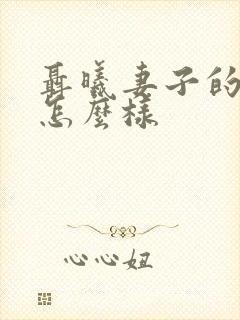 聶曦妻子的
怎麼樣
心心妞